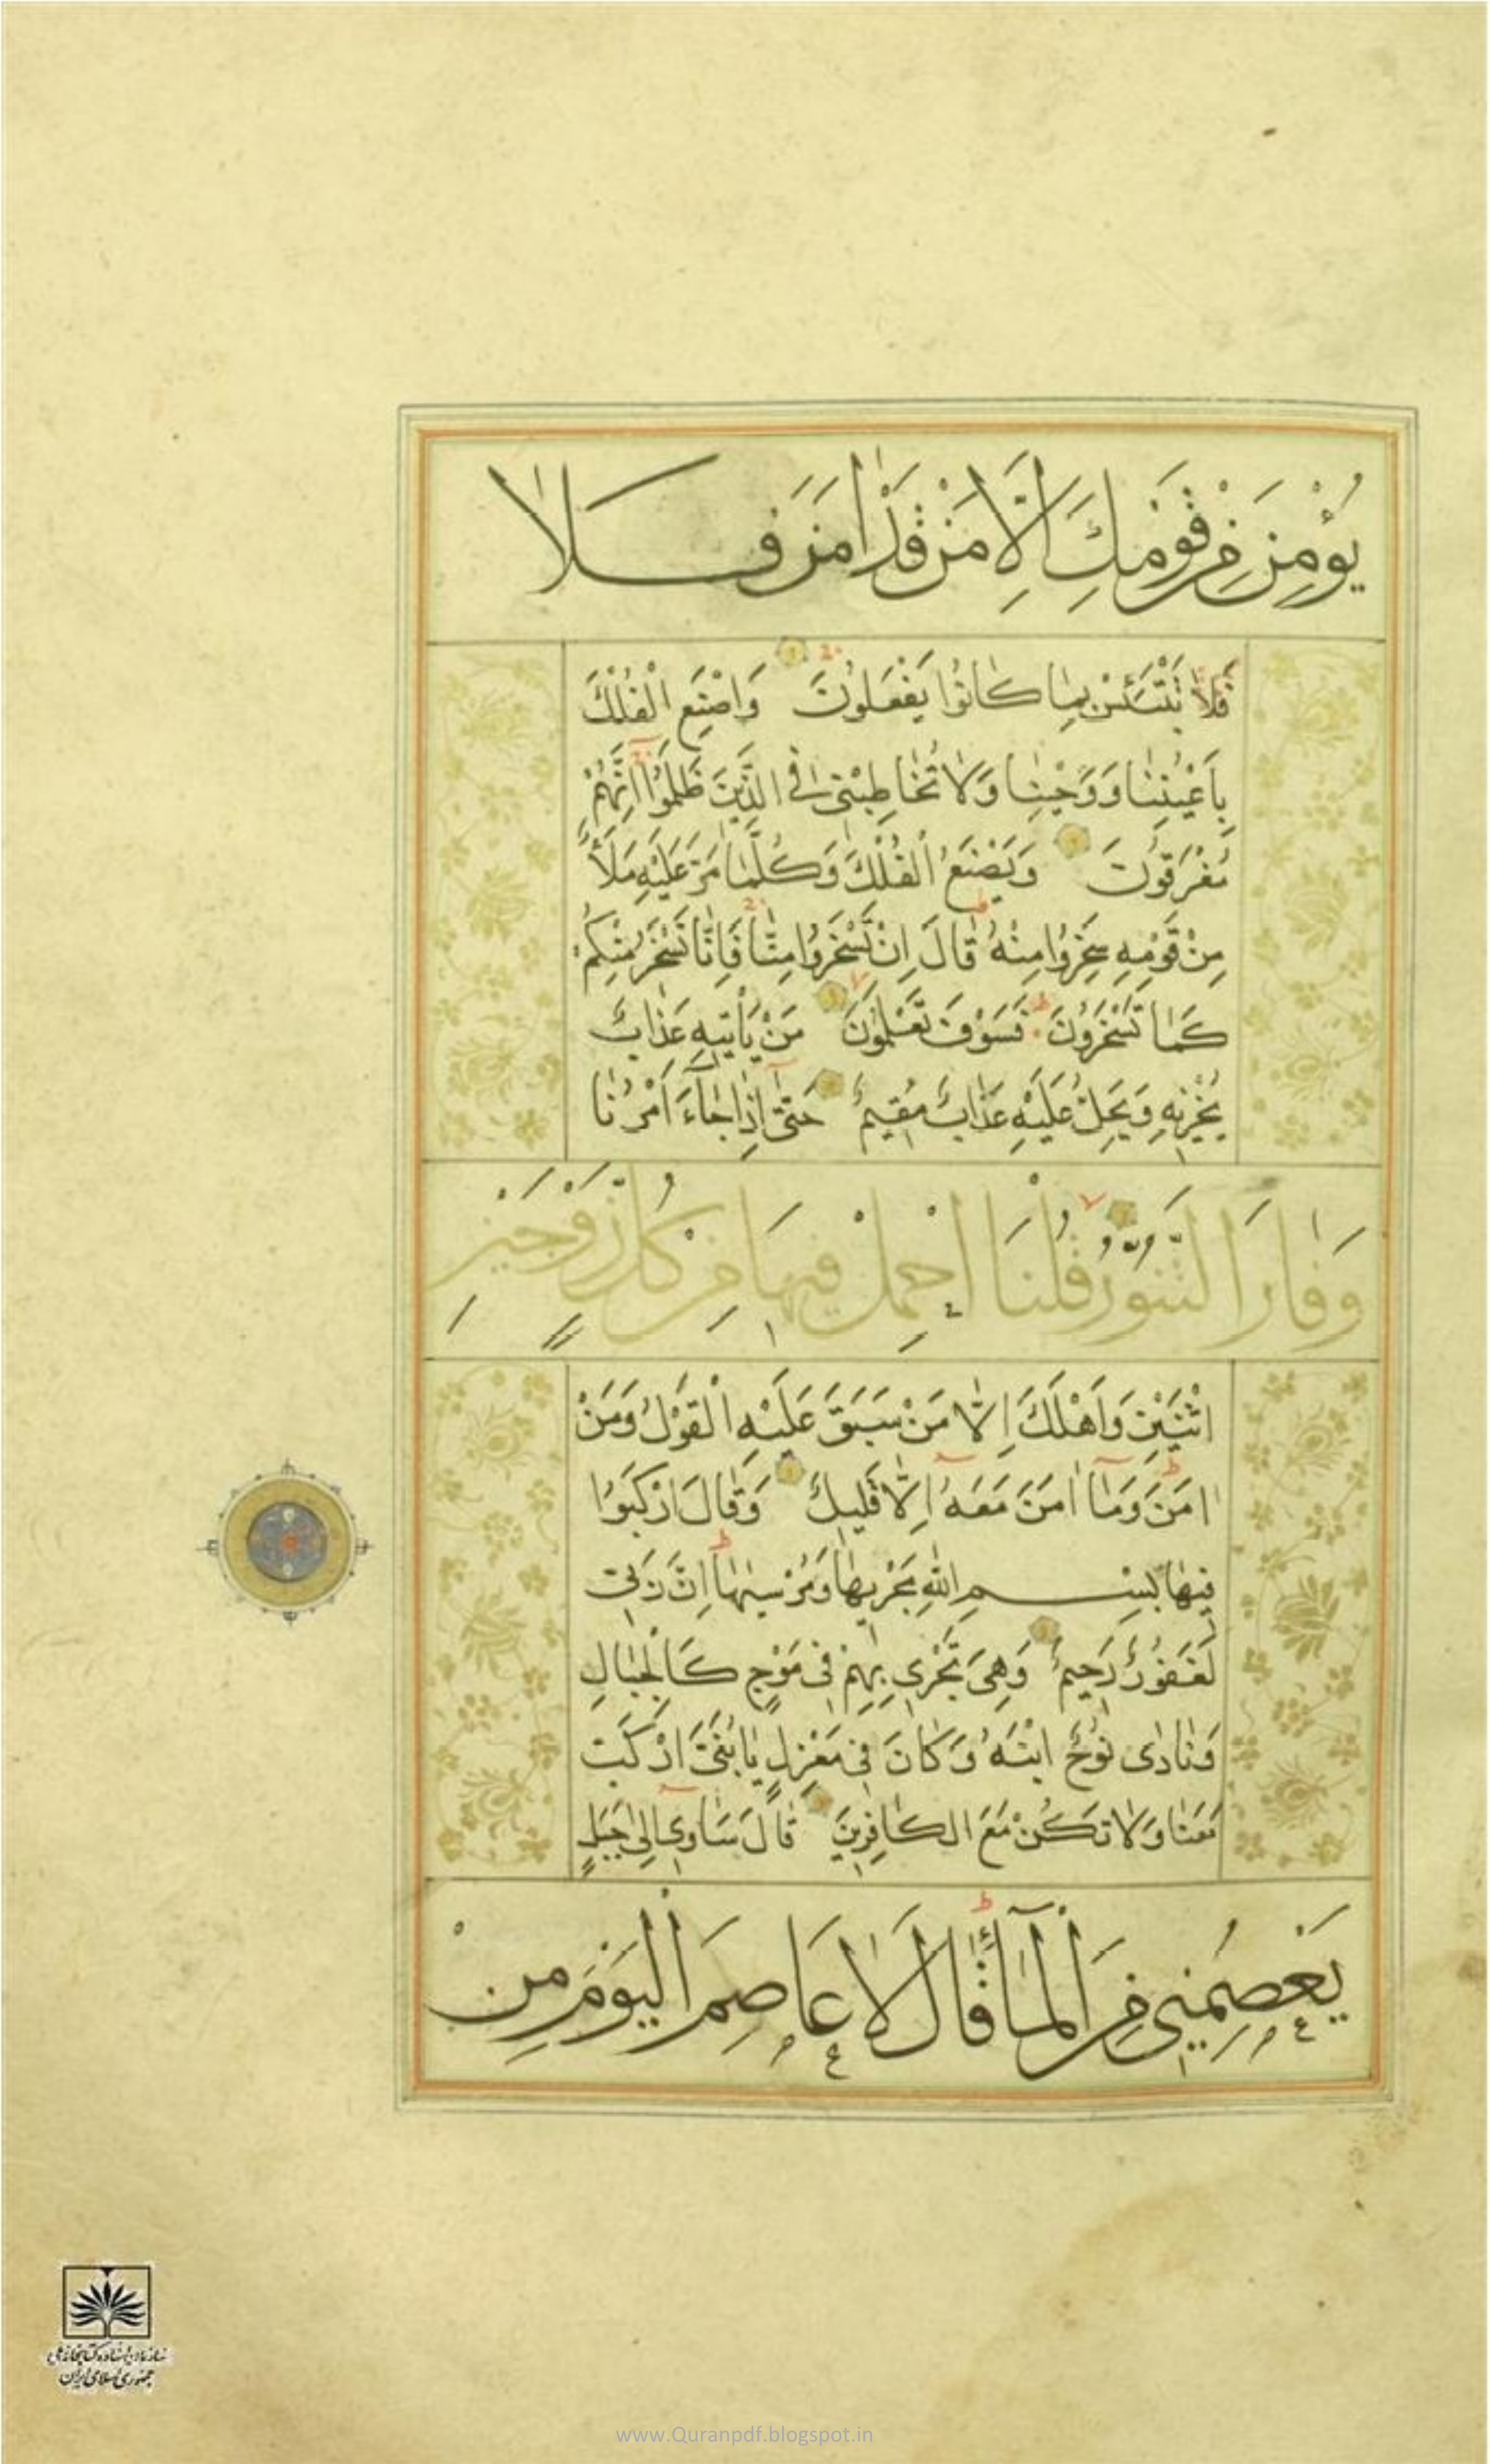 يُؤْمِنَ مِنْ قَوْمِكَ اِلَّا مَنْ قَدْ اٰمَنَ فَلَا
فَلَا تَبْتَئِسْ بِمَا كَانُوا يَفْعَلُونَ وَاصْنَعِ الْفُلْكَ
بِاَعْيُنِنَا وَوَحْيِنَا وَلَا تُخَاطِبْنِى فِى الَّذِينَ ظَلَمُوا اِنَّهُمْ
مُغْرَقُونَ وَيَصْنَعُ الْفُلْكَ وَكُلَّمَا مَرَّ عَلَيْهِ مَلَأٌ
مِنْ قَوْمِهِ سَخِرُوا مِنْهُ قَالَ اِنْ تَسْخَرُوا مِنَّا فَاِنَّا نَسْخَرُ مِنْكُمْ
كَمَا تَسْخَرُونَ فَسَوْفَ تَعْلَمُونَ مَنْ يَأْتِيهِ عَذَابٌ
يُخْزِيهِ وَيَحِلُّ عَلَيْهِ عَذَابٌ مُقِيمٌ حَتّٰى اِذَا جَآءَ اَمْرُنَا
وَفَارَ التَّنُّورُ قُلْنَا احْمِلْ فِيهَا مِنْ كُلٍّ زَوْجَيْنِ
اثْنَيْنِ وَاَهْلَكَ اِلَّا مَنْ سَبَقَ عَلَيْهِ الْقَوْلُ وَمَنْ
اٰمَنَ وَمَآ اٰمَنَ مَعَهُ اِلَّا قَلِيلٌ وَقَالَ ارْكَبُوا
فِيهَا بِسْمِ اللّٰهِ مَجْرٰيهَا وَمُرْسٰيهَا اِنَّ رَبِّى
لَغَفُورٌ رَحِيمٌ وَهِىَ تَجْرِى بِهِمْ فِى مَوْجٍ كَالْجِبَالِ
وَنَادٰى نُوحٌ ابْنَهُ وَكَانَ فِى مَعْزِلٍ يَا بُنَىَّ ارْكَبْ
مَعَنَا وَلَا تَكُنْ مَعَ الْكَافِرِينَ قَالَ سَاٰوِى اِلٰى جَبَلٍ
يَعْصِمُنِى مِنَ الْمَآءِ قَالَ لَا عَاصِمَ الْيَوْمَ مِنْ
سازمان اسناد و کتابخانه ملی
جمهوری اسلامی ایران
www.Quranpdf.blogspot.in